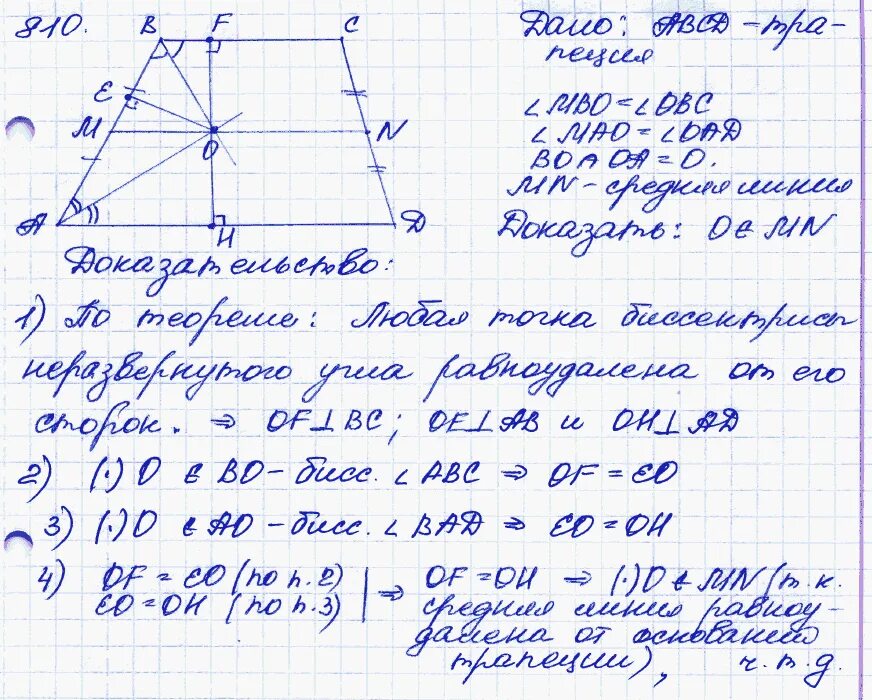 810.
B F C
E
M O N
A H D
Дано: ABCD – тра-
пеция
∠MBO = ∠OBC
∠MAO = ∠OAD
BO ∩ OA = O.
MN – средняя линия
Доказать: O ∈ MN
Доказательство:
1) По теореме: Любая точка биссектрисы
неразвернутого угла равноудалена от его
сторон. ⇒ OF ⊥ BC; OE ⊥ AB и OH ⊥ AD
2) (·) O ∈ BO – бисс. ∠ABC ⇒ OF = EO
3) (·) O ∈ AO – бисс. ∠BAD ⇒ EO = OH
4) OF = EO (по п. 2) | ⇒ OF = OH ⇒ (·) O ∈ MN (т.к.
EO = OH (по п. 3) средняя линия равноу-
далена от оснований
трапеции), ч.т.д.